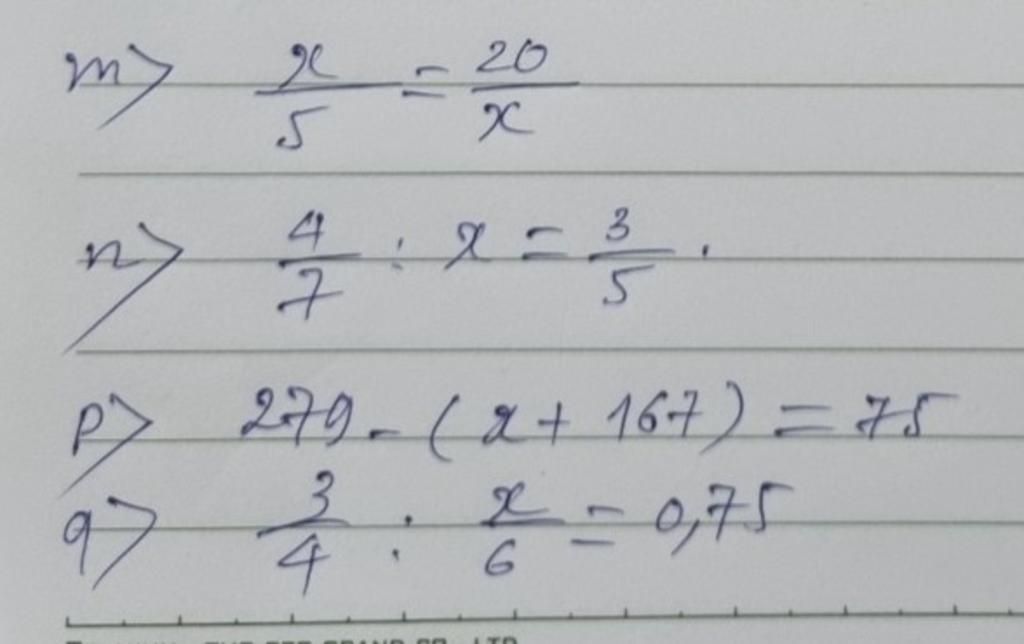 m> x/5 = 20/x
n> 4/7 : x = 3/5 .
p> 279 - (x + 167) = 75
q> 3/4 : x/6 = 0,75